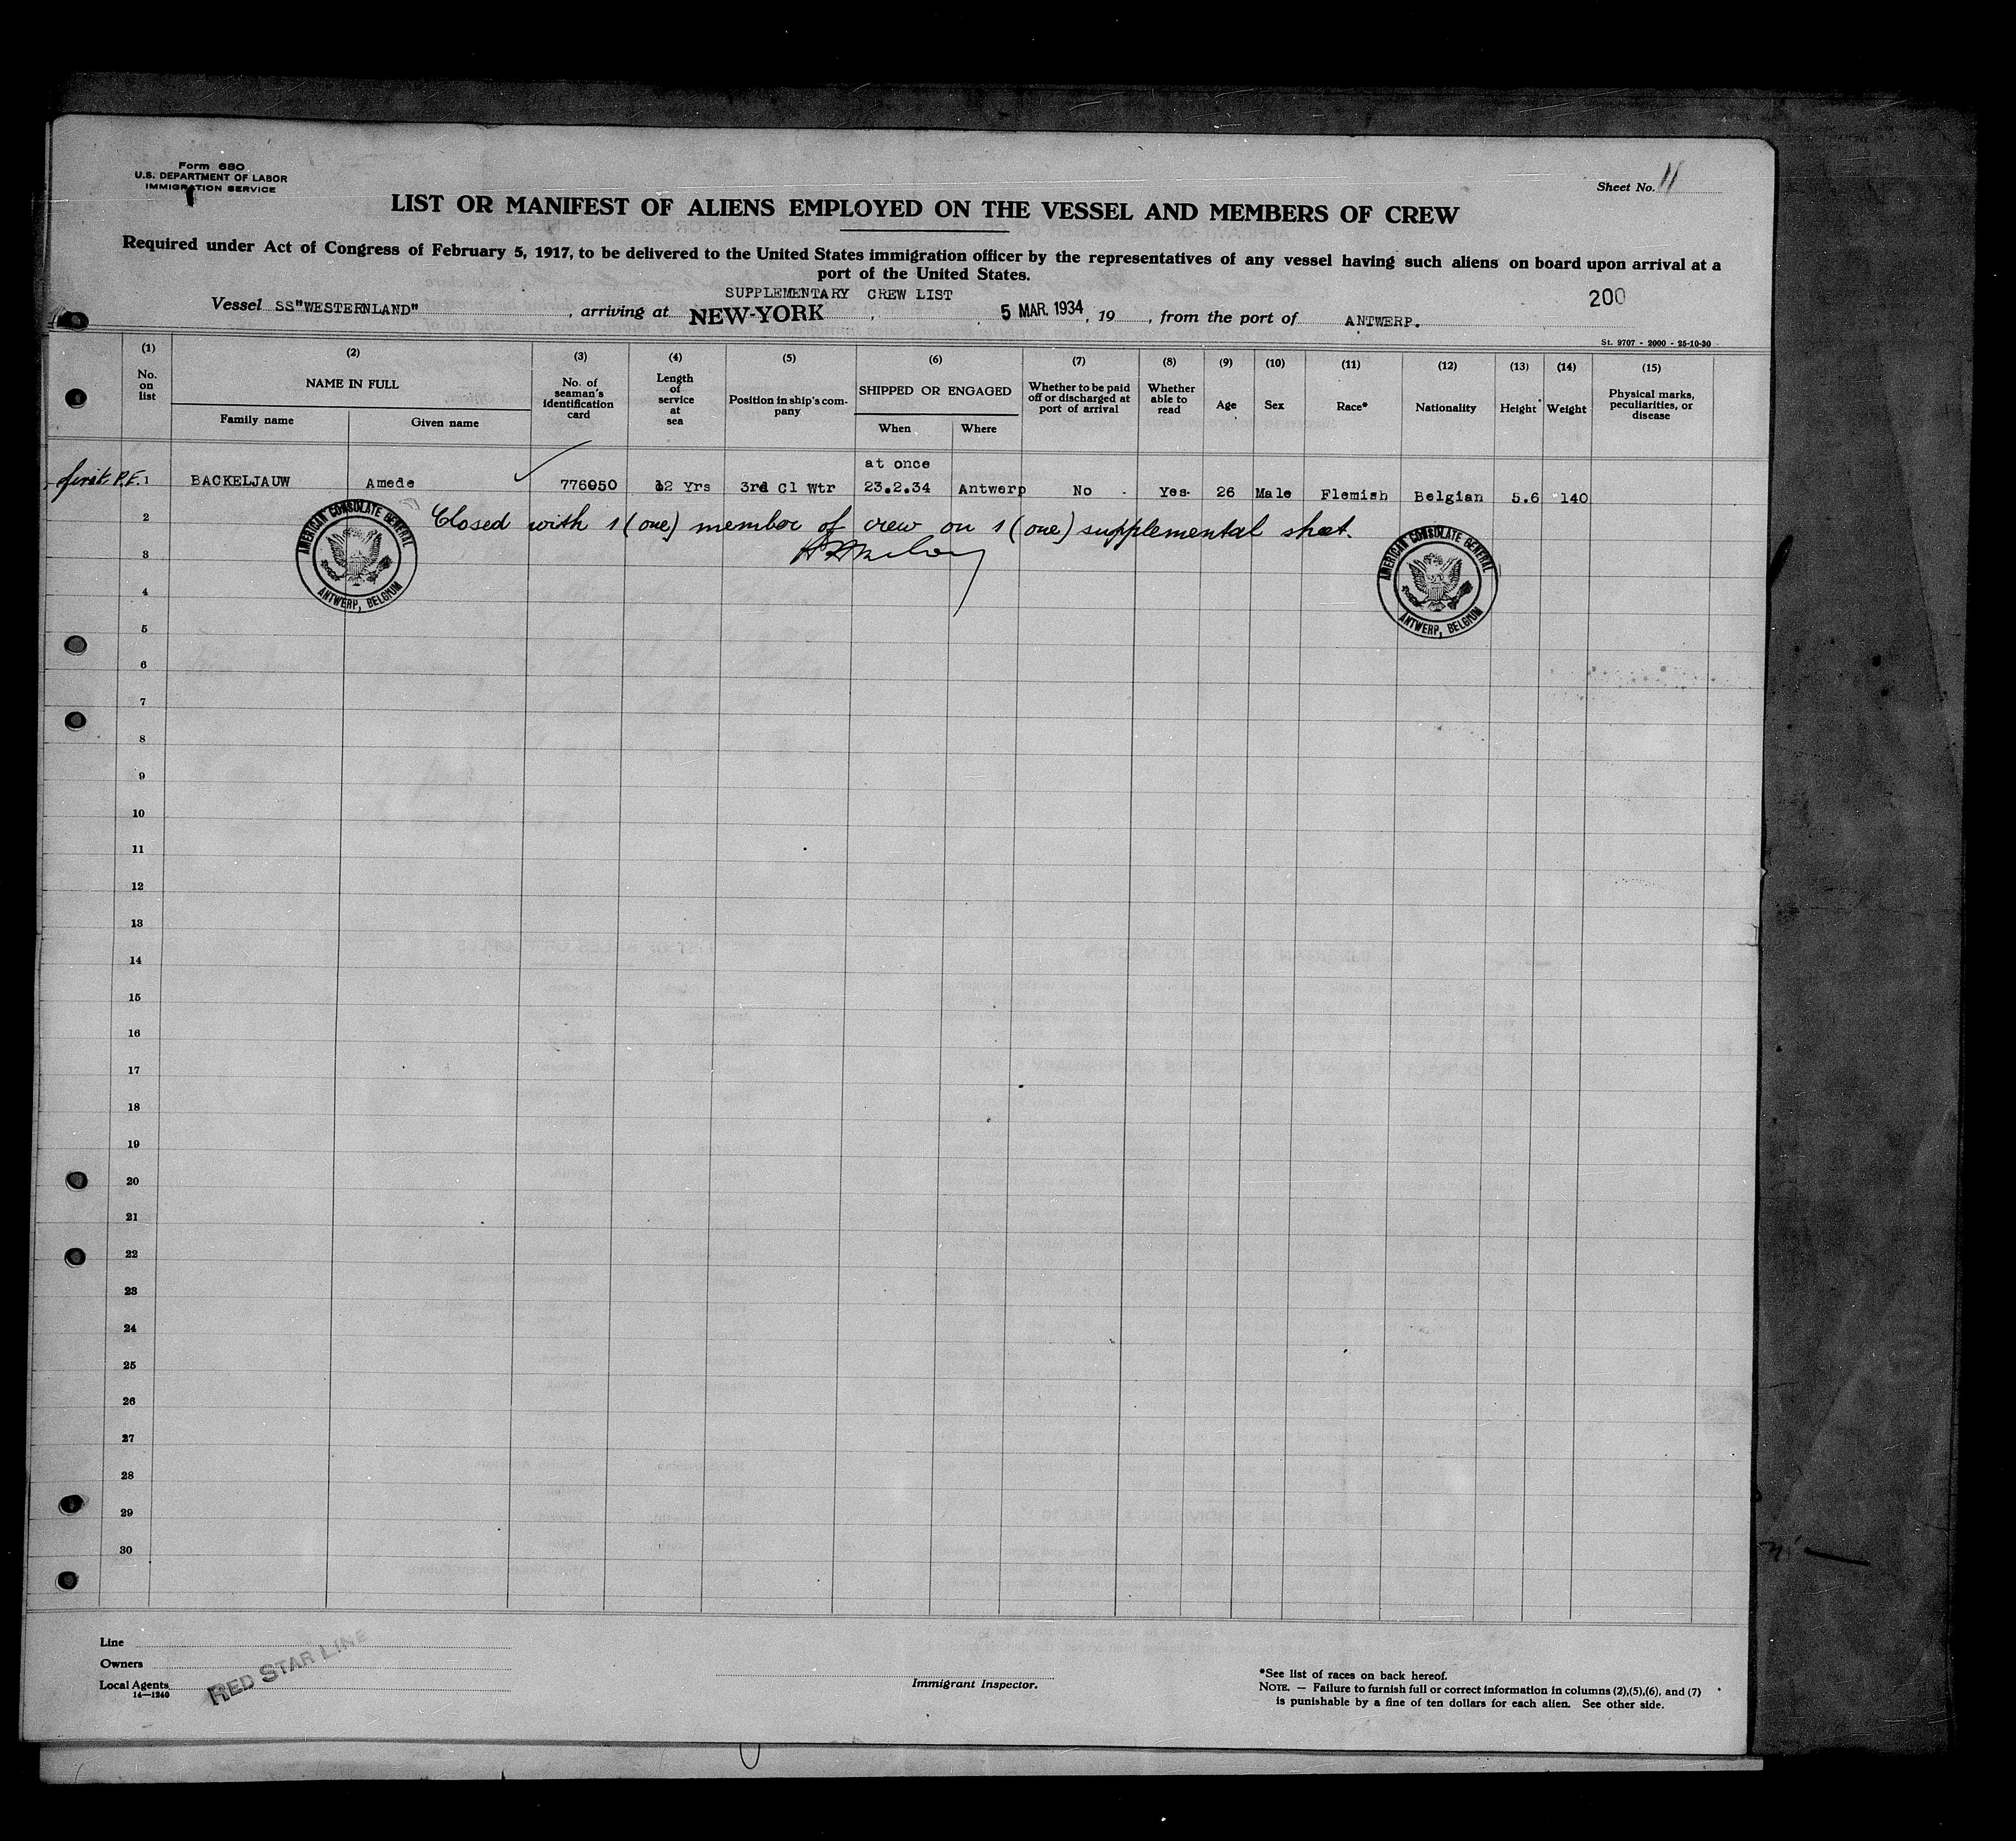 Form 680
U.S. DEPARTMENT OF LABOR
IMMIGRATION SERVICE
Sheet No. 11
LIST OR MANIFEST OF ALIENS EMPLOYED ON THE VESSEL AND MEMBERS OF CREW
Required under Act of Congress of February 5, 1917, to be delivered to the United States immigration officer by the representatives of any vessel having such aliens on board upon arrival at a
port of the United States.
SUPPLEMENTARY CREW LIST
200
Vessel SS"WESTERNLAND", arriving at NEW-YORK, 5 MAR. 1934, 19, from the port of ANTWERP.
St. 9707 - 2000 - 25-10-30
(1) (2) (3) (4) (5) (6) (7) (8) (9) (10) (11) (12) (13) (14) (15)
No. on list
NAME IN FULL
Family name Given name
No. of seaman's identification card
Length of service at sea
Position in ship's company
SHIPPED OR ENGAGED
When Where
Whether to be paid off or discharged at port of arrival
Whether able to read
Age
Sex
Race*
Nationality
Height
Weight
Physical marks, peculiarities, or disease
at once
first P.E. 1 BACKELJAUW Amede 776050 12 Yrs 3rd Cl Wtr 23.2.34 Antwerp No - Yes- 26 Male Flemish Belgian 5.6 140
2 Closed with 1 (one) member of crew on 1 (one) supplemental sheet.
AMERICAN CONSULATE GENERAL
ANTWERP, BELGIUM
AMERICAN CONSULATE GENERAL
ANTWERP, BELGIUM
3
4
5
6
7
8
9
10
11
12
13
14
15
16
17
18
19
20
21
22
23
24
25
26
27
28
29
30
Line
Owners
Local Agents
14—1240
RED STAR LINE
Immigrant Inspector.
*See list of races on back hereof.
NOTE. — Failure to furnish full or correct information in columns (2),(5),(6), and (7)
is punishable by a fine of ten dollars for each alien. See other side.